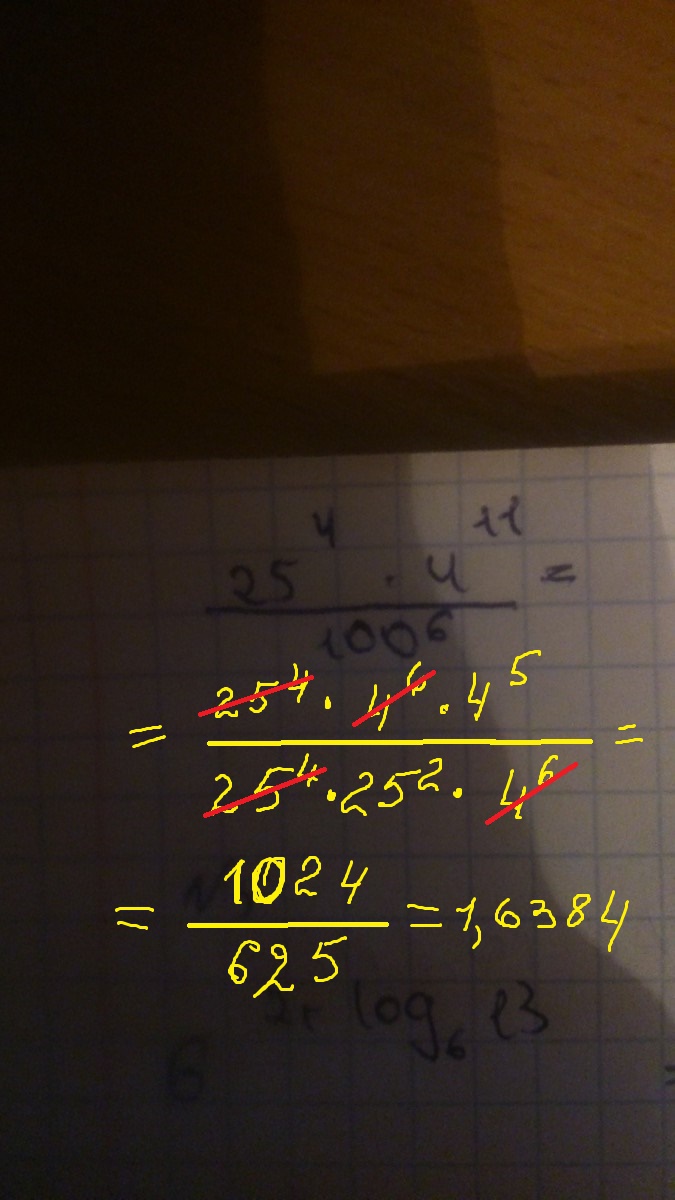 25⁴ · 4¹¹ =
100⁶
= 25⁴ · 4⁶ · 4⁵ =
25⁴ · 25² · 4⁶
= 1024 = 1,6384
625
log₆ 13
6